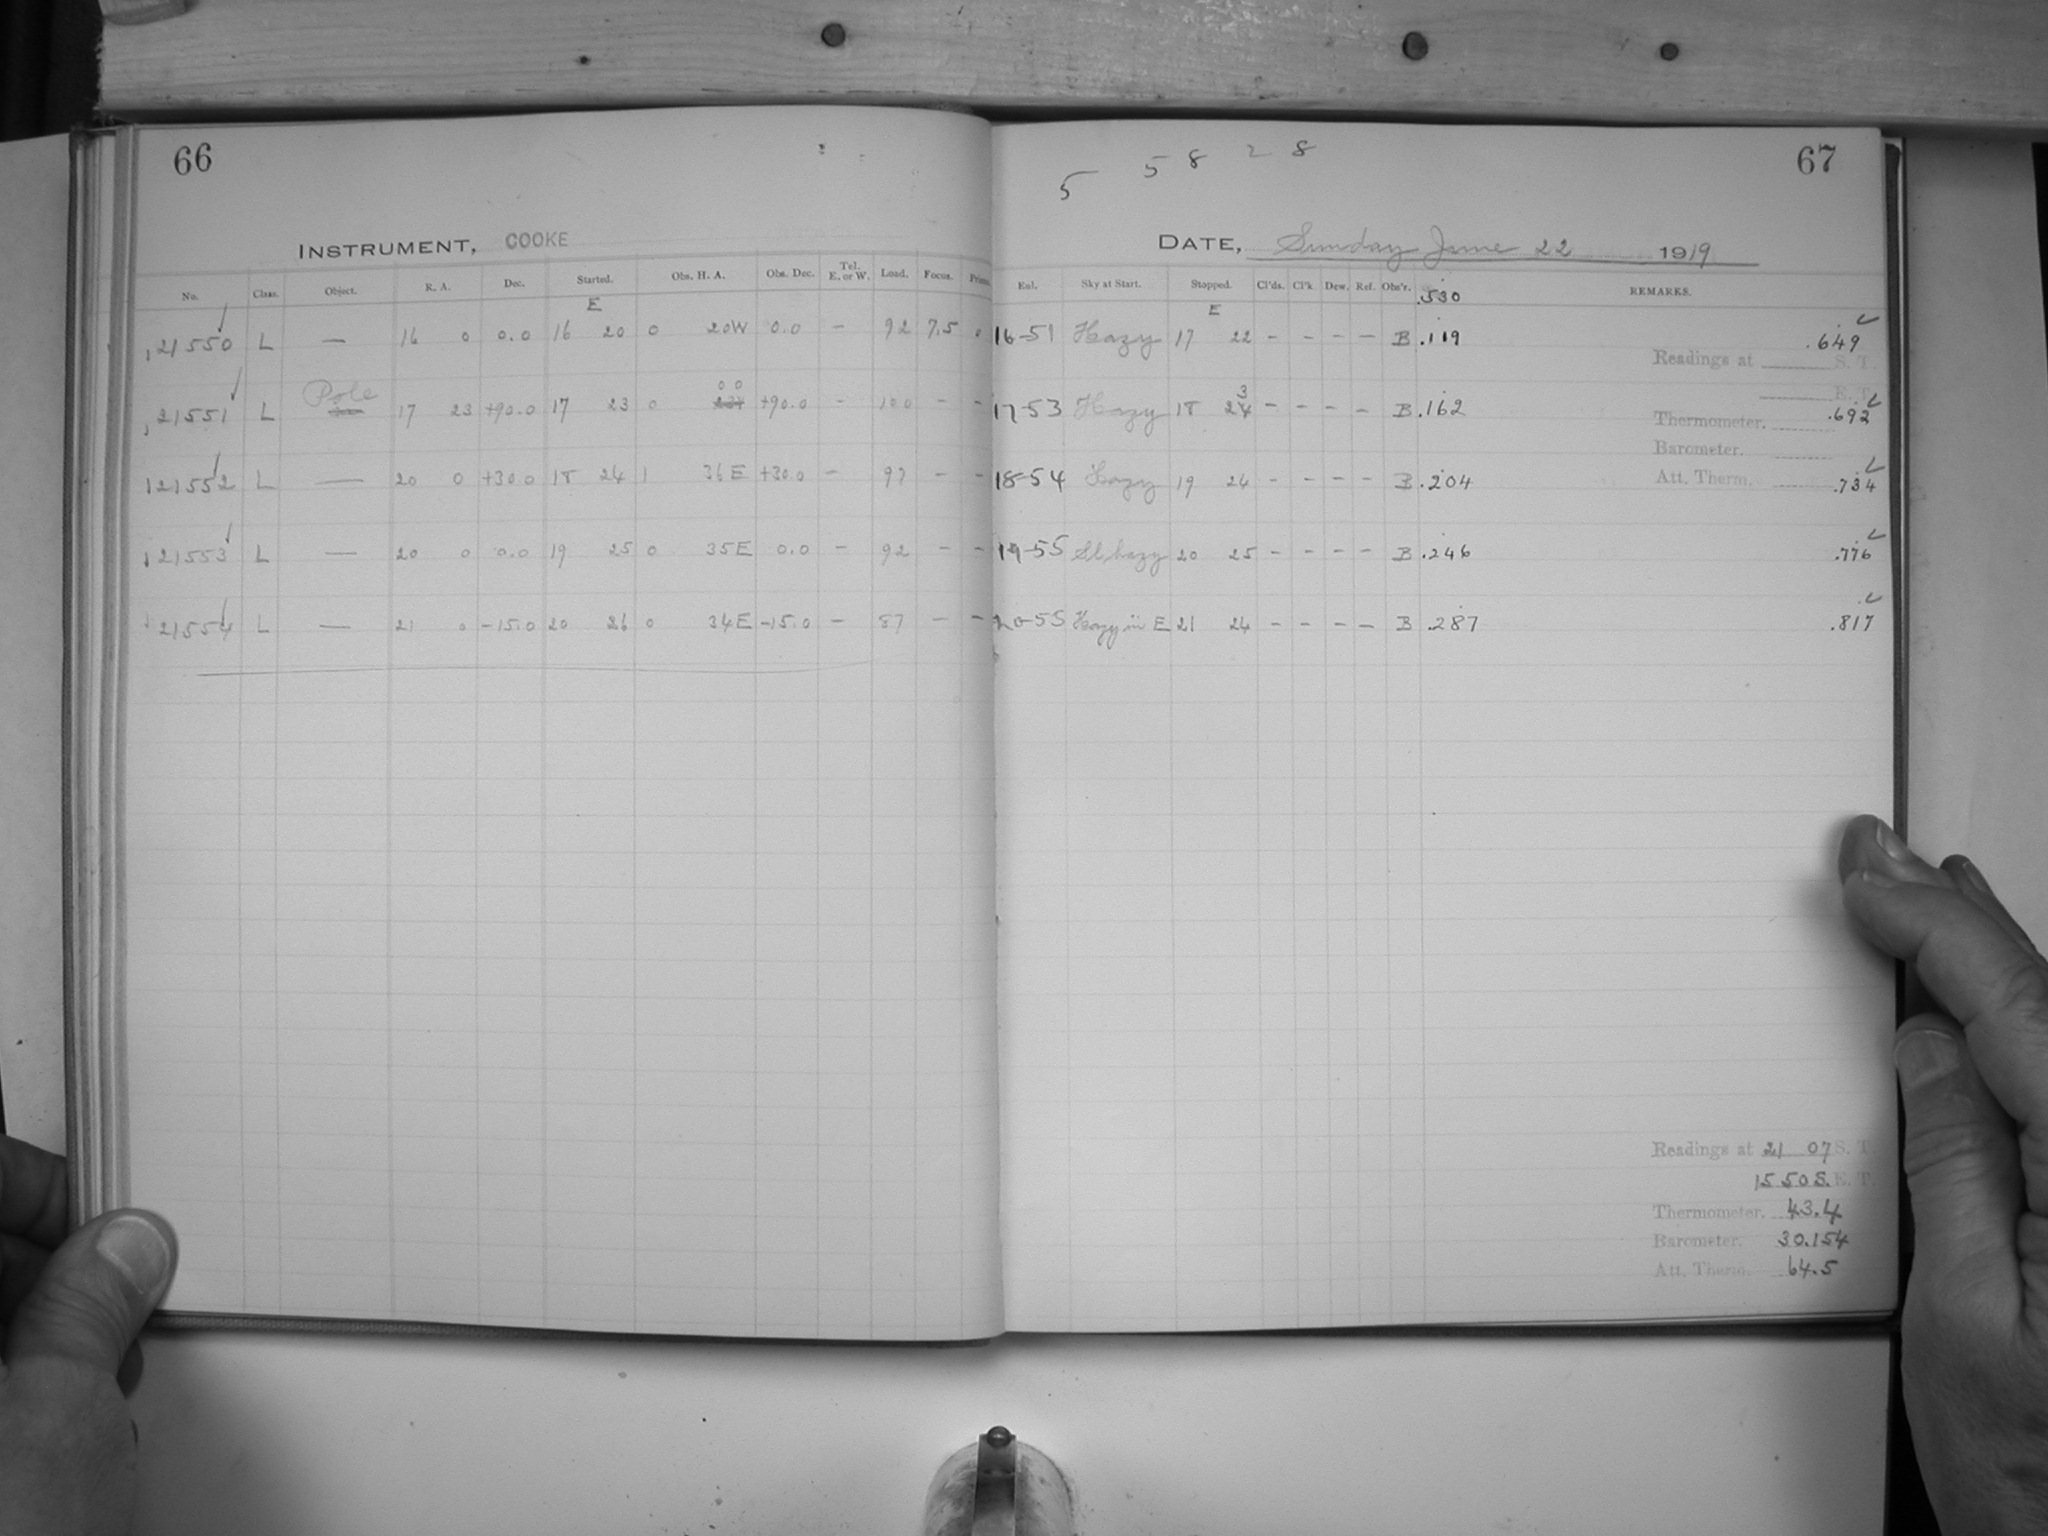 66
INSTRUMENT, COOKE
No. Class. Object. R. A. Dec. Started. Obs. H. A. Obs. Dec. Tel. E. or W. Load. Focus.
E
21550 L — 16 0 0.0 16 20 0 20W 0.0 – 92 7.5
Pole 00
21551 L 17 23 +90.0 17 23 0 +90.0 – 100 – –
21552 L — 20 0 +30.0 18 24 1 36E +30.0 – 97 – –
21553 L — 20 0 0.0 19 25 0 35E 0.0 – 92 – –
21554 L — 21 0 –15.0 20 26 0 34E –15.0 – 87 – –
5 5 8 2 8
67
DATE, Sunday June 22 1919
Sky at Start. Stopped. Cl'ds. Cl'k. Dew. Ref. Obs'r. .530 REMARKS.
E
16-51 Hazy 17 22 – – – – B .119 .649
Readings at S. T.
E. T.
3
17-53 Hazy 18 24 – – – – B .162 .692
Thermometer.
Barometer.
18-54 Hazy 19 24 – – – – B .204 .734
Att. Therm.
19-55 Sl. hazy 20 25 – – – – B .246 .776
20-55 Hazy in E 21 24 – – – – B .287 .817
Readings at 21 07 S. T.
15 50 S. E. T.
Thermometer. 43.4
Barometer. 30.154
Att. Therm. 64.5